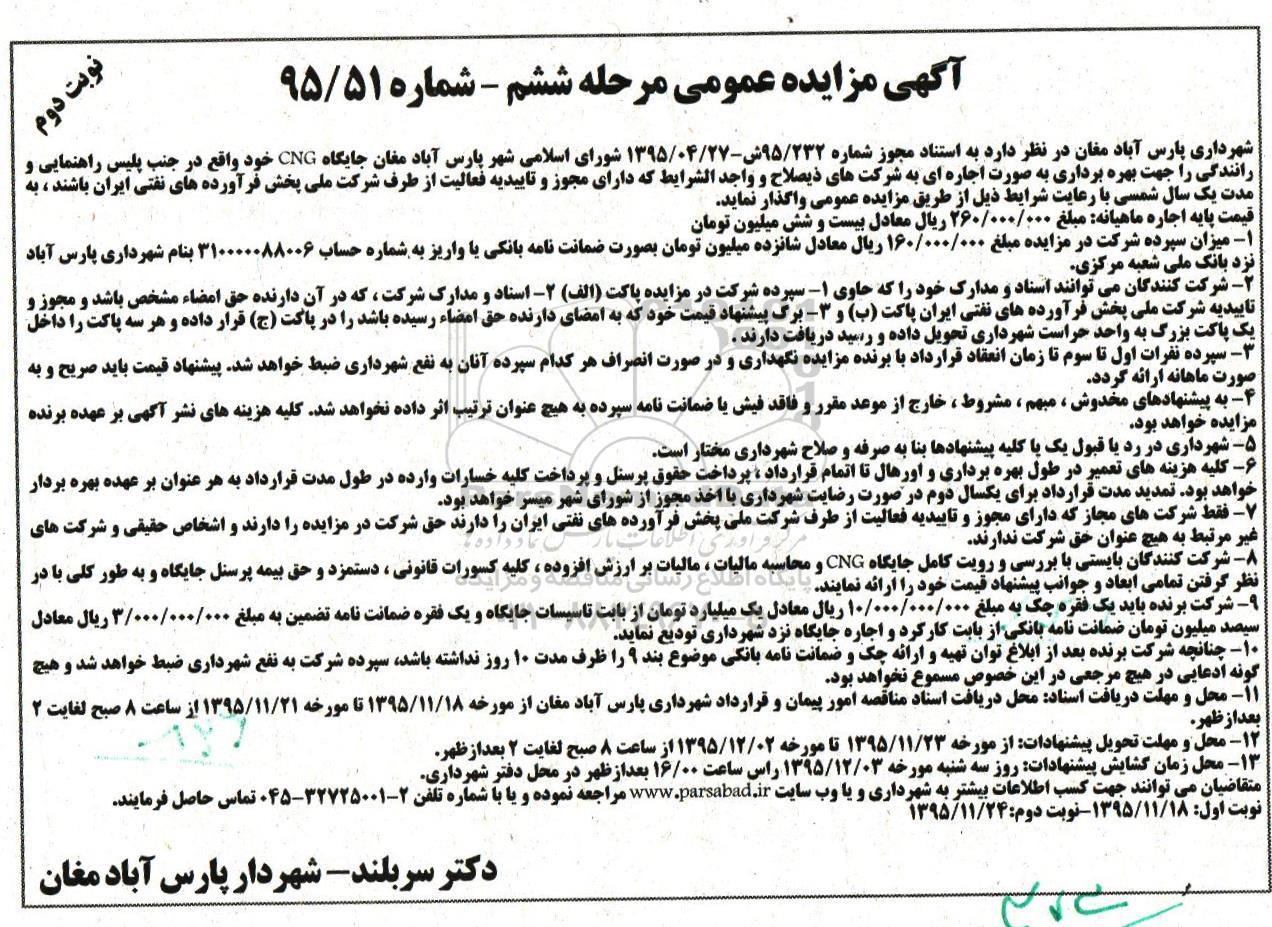 آگهی مزایده عمومی مرحله ششم - شماره ۹۵/۵۱
نوبت دوم
شهرداری پارس آباد مغان در نظر دارد به استناد مجوز شماره ۹۵/۲۳۲ش-۱۳۹۵/۰۴/۲۷ شورای اسلامی شهر پارس آباد مغان جایگاه CNG خود واقع در جنب پلیس راهنمایی و
رانندگی را جهت بهره برداری به صورت اجاره ای به شرکت های ذیصلاح و واجد الشرایط که دارای مجوز و تاییدیه فعالیت از طرف شرکت ملی پخش فرآورده های نفتی ایران باشند ، به
مدت یک سال شمسی با رعایت شرایط ذیل از طریق مزایده عمومی واگذار نماید.
قیمت پایه اجاره ماهیانه: مبلغ ۲۶۰/۰۰۰/۰۰۰ ریال معادل بیست و شش میلیون تومان
۱- میزان سپرده شرکت در مزایده مبلغ ۱۶۰/۰۰۰/۰۰۰ ریال معادل شانزده میلیون تومان بصورت ضمانت نامه بانکی یا واریز به شماره حساب ۳۱۰۰۰۰۰۸۸۰۰۶ بنام شهرداری پارس آباد
نزد بانک ملی شعبه مرکزی.
۲- شرکت کنندگان می توانند اسناد و مدارک خود را که حاوی ۱- سپرده شرکت در مزایده پاکت (الف) ۲- اسناد و مدارک شرکت ، که در آن دارنده حق امضاء مشخص باشد و مجوز و
تاییدیه شرکت ملی پخش فرآورده های نفتی ایران پاکت (ب) و ۳- برگ پیشنهاد قیمت خود که به امضای دارنده حق امضاء رسیده باشد را در پاکت (ج) قرار داده و هر سه پاکت را داخل
یک پاکت بزرگ به واحد حراست شهرداری تحویل داده و رسید دریافت دارند .
۳- سپرده نفرات اول تا سوم تا زمان انعقاد قرارداد با برنده مزایده نگهداری و در صورت انصراف هر کدام سپرده آنان به نفع شهرداری ضبط خواهد شد. پیشنهاد قیمت باید صریح و به
صورت ماهانه ارائه گردد.
۴- به پیشنهادهای مخدوش ، مبهم ، مشروط ، خارج از موعد مقرر و فاقد فیش یا ضمانت نامه سپرده به هیچ عنوان ترتیب اثر داده نخواهد شد. کلیه هزینه های نشر آگهی بر عهده برنده
مزایده خواهد بود.
۵- شهرداری در رد یا قبول یک یا کلیه پیشنهادها بنا به صرفه و صلاح شهرداری مختار است.
۶- کلیه هزینه های تعمیر در طول بهره برداری و اورهال تا اتمام قرارداد ، پرداخت حقوق پرسنل و پرداخت کلیه خسارات وارده در طول مدت قرارداد به هر عنوان بر عهده بهره بردار
خواهد بود. تمدید مدت قرارداد برای یکسال دوم در صورت رضایت شهرداری با اخذ مجوز از شورای شهر میسر خواهد بود.
۷- فقط شرکت های مجاز که دارای مجوز و تاییدیه فعالیت از طرف شرکت ملی پخش فرآورده های نفتی ایران را دارند حق شرکت در مزایده را دارند و اشخاص حقیقی و شرکت های
غیر مرتبط به هیچ عنوان حق شرکت ندارند.
۸- شرکت کنندگان بایستی با بررسی و رویت کامل جایگاه CNG و محاسبه مالیات ، مالیات بر ارزش افزوده ، کلیه کسورات قانونی ، دستمزد و حق بیمه پرسنل جایگاه و به طور کلی با در
نظر گرفتن تمامی ابعاد و جوانب پیشنهاد قیمت خود را ارائه نمایند.
۹- شرکت برنده باید یک فقره چک به مبلغ ۱۰/۰۰۰/۰۰۰/۰۰۰ ریال معادل یک میلیارد تومان از بابت تاسیسات جایگاه و یک فقره ضمانت نامه تضمین به مبلغ ۳/۰۰۰/۰۰۰/۰۰۰ ریال معادل
سیصد میلیون تومان ضمانت نامه بانکی از بابت کارکرد و اجاره جایگاه نزد شهرداری تودیع نماید.
۱۰- چنانچه شرکت برنده بعد از ابلاغ توان تهیه و ارائه چک و ضمانت نامه بانکی موضوع بند ۹ را ظرف مدت ۱۰ روز نداشته باشد، سپرده شرکت به نفع شهرداری ضبط خواهد شد و هیچ
گونه ادعایی در هیچ مرجعی در این خصوص مسموع نخواهد بود.
۱۱- محل و مهلت دریافت اسناد: محل دریافت اسناد مناقصه امور پیمان و قرارداد شهرداری پارس آباد مغان از مورخه ۱۳۹۵/۱۱/۱۸ تا مورخه ۱۳۹۵/۱۱/۲۱ از ساعت ۸ صبح لغایت ۲
بعدازظهر.
۱۲- محل و مهلت تحویل پیشنهادات: از مورخه ۱۳۹۵/۱۱/۲۳ تا مورخه ۱۳۹۵/۱۲/۰۲ از ساعت ۸ صبح لغایت ۲ بعدازظهر.
۱۳- محل زمان گشایش پیشنهادات: روز سه شنبه مورخه ۱۳۹۵/۱۲/۰۳ راس ساعت ۱۶/۰۰ بعدازظهر در محل دفتر شهرداری.
متقاضیان می توانند جهت کسب اطلاعات بیشتر به شهرداری و یا وب سایت www.parsabad.ir مراجعه نموده و یا با شماره تلفن ۲-۳۲۷۲۵۰۰۱-۰۴۵ تماس حاصل فرمایند.
نوبت اول: ۱۳۹۵/۱۱/۱۸-نوبت دوم:۱۳۹۵/۱۱/۲۴
دکتر سربلند- شهردار پارس آباد مغان